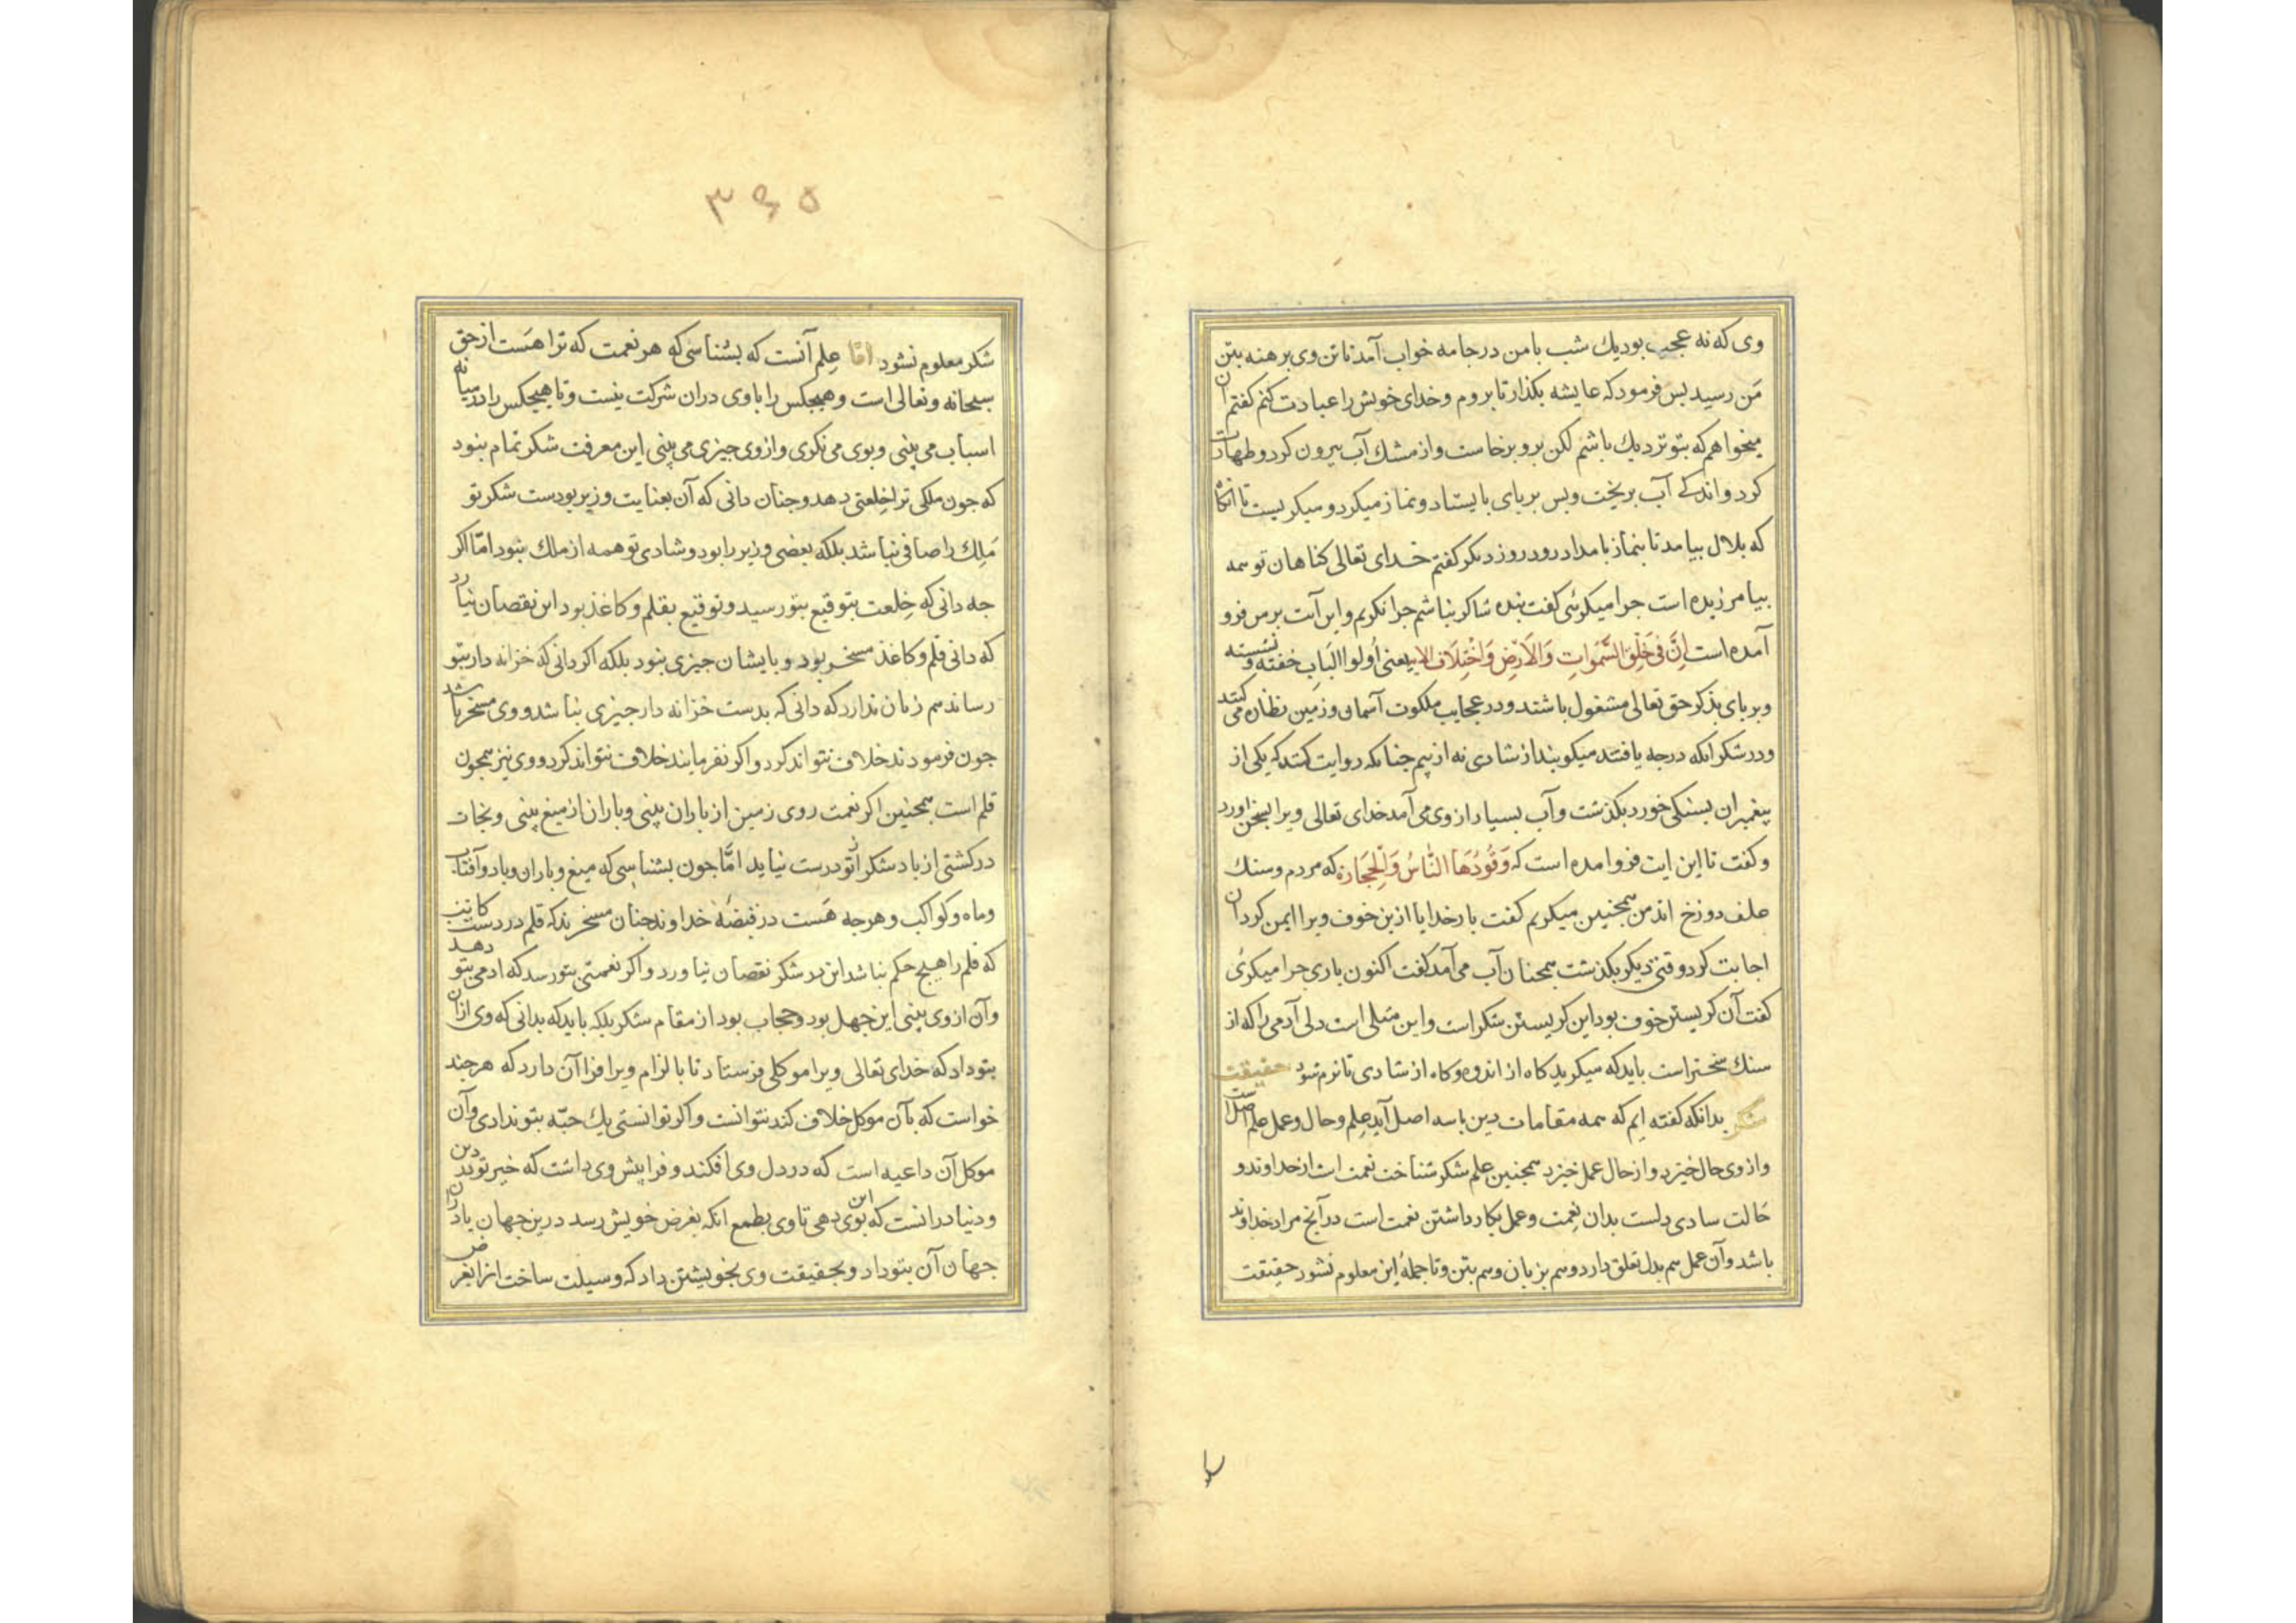 وی که نه عجب بود یك شب با من در جامه خواب آمد تا تن وی برهنه بتن
مَن رسید بس فرمود که عایشه بکذار تا بروم و خدای خویش را عبادت کنم کفتم آن
میخواهم که بتو نزدیك باشم لکن برو برخاست و از مشك آب بیرون کرد و طهارت
کرد و اندکے آب بریخت و بس بربای بایستاد و نماز میکرد و میکریست تا آنکاه
که بلال بیامد تا بنماز بامداد رود روز دیکر کفتم خدای تعالی کناهان تو همه
بیامرزیده است جرا میکرئی کفت بنده شاکر نباشم جرا نکریم و این آیت بر من فرو
آمده است اِنَّ فی خَلْقِ السَّمٰوَاتِ وَالْاَرْضِ وَاخْتِلَافِ الایه یعنی اُولوا الباب خفته و نشسته
و بربای بذکر حق تعالی مشغول باشند و در عجایب ملکوت آسمان و زمین نظاره می کنند
و در شکر آنکه درجه یافتند میکویند از شادی نه از بیم جنانکه روایت کنند که یکی از
پیغمبران بسنکی خورد بکذشت و آب بسیار از وی می آمد خدای تعالی ویرا بسخن آورد
و کفت تا این ایت فرو امده است که وَقُودُهَا النَّاسُ وَالْحِجَارَة که مردم و سنك
علف دوزخ اند من همجنین میکریم کفت بار خدایا از ین خوف ویرا ایمن کردان
اجابت کرد وقتی دیکر بکذشت همجنان آب می آمد کفت اکنون باری جرا میکرئی
کفت آن کریستن خوف بود این کریستن شکر است و این مثلی است دلی آدمی را که از
سنك سختر است باید که میکرید کاه از اندوه و کاه از شادی تا نرم شود حقیقت
شکر بدانکه کفته ایم که همه مقامات دین با سه اصل آید علم و حال و عمل علم اصل است
و از وی حال خیزد و از حال عمل خیزد همجنین علم شکر شناخت نعمت است از خداوند و
حَالت شادی دلست بدان نعمت و عمل بکار داشتن نعمت است در آنج مراد خداوند
باشد و آن عمل هم بدل تعلق دارد و هم بزبان و هم بتن و تا جملهٔ این معلوم نشود حقیقت
۳۶۵
شکر معلوم نشود امّا عِلم آنست که بشناسی که هر نعمت که ترا هست از حق
سبحانه و تعالی است و هیجکس را با وی دران شرکت نیست و تا هیجکس را در میانه
اسباب می بینی و بوی می نکری و از وی جیزی می بینی این معرفت شکر تمام نبود
که جون ملکی ترا خِلعتی دهد و جنان دانی که آن بعنایت وزیر بودست شکر تو
مَلِك را صافی نباشد بلکه بعضی وزیر را بود و شادی تو همه از ملك نبود امّا اکر
جه دانی که خِلعت بتوقیع بتو رسید و توقیع بقلم و کاغذ بود این نقصان نیارد
که دانی قلم و کاغذ مسخر بود و بایشان جیزی نبود بلکه اکر دانی که خزانه دار بتو
رساند هم زیان ندارد که دانی که بدست خزانه دار جیزی نباشد و وی مسخر باشد
جون فرمودند خلاف نتواند کرد و اکر نفرمایند خلاف نتواند کرد و وی نیز همجون
قلم است همجنین اکر نعمت روی زمین از باران بینی و باران از میغ بینی و نجات
در کشتی از باد شکر از تو درست نیاید امّا جون بشناسی که میغ و باران و باد و آفتاب
و ماه و کواکب و هرجه هَست در قبضهٔ خداوند جنان مسخرند که قلم در دست کاتب
که قلم را هیچ حکم نباشد این در شکر نقصان نیاورد و اکر نعمتی بتو رسد که ادمی بتو دهد
و آن از وی بینی این جهل بود و حجاب بود از مقام شکر بلکه باید که بدانی که وی ازان
بتو داد که خدای تعالی ویرا موکلی فرستاد تا بالزام ویرا فرا آن دارد که هرجند
خواست که با آن موکل خلاف کند نتوانست و اکر توانستی یك حبّه بتو ندادی و آن
موکل آن داعیه است که در دل وی افکند و فرا پیش وی داشت که خیر تو در دین
و دنیا درانست که این بوی دهی تا وی بطمع آنکه بغرض خویش رسد درین جهان یا دران
جهان آن بتو داد و بحقیقت وی بخویشتن داد که وسیلت ساخت از ان بغرض